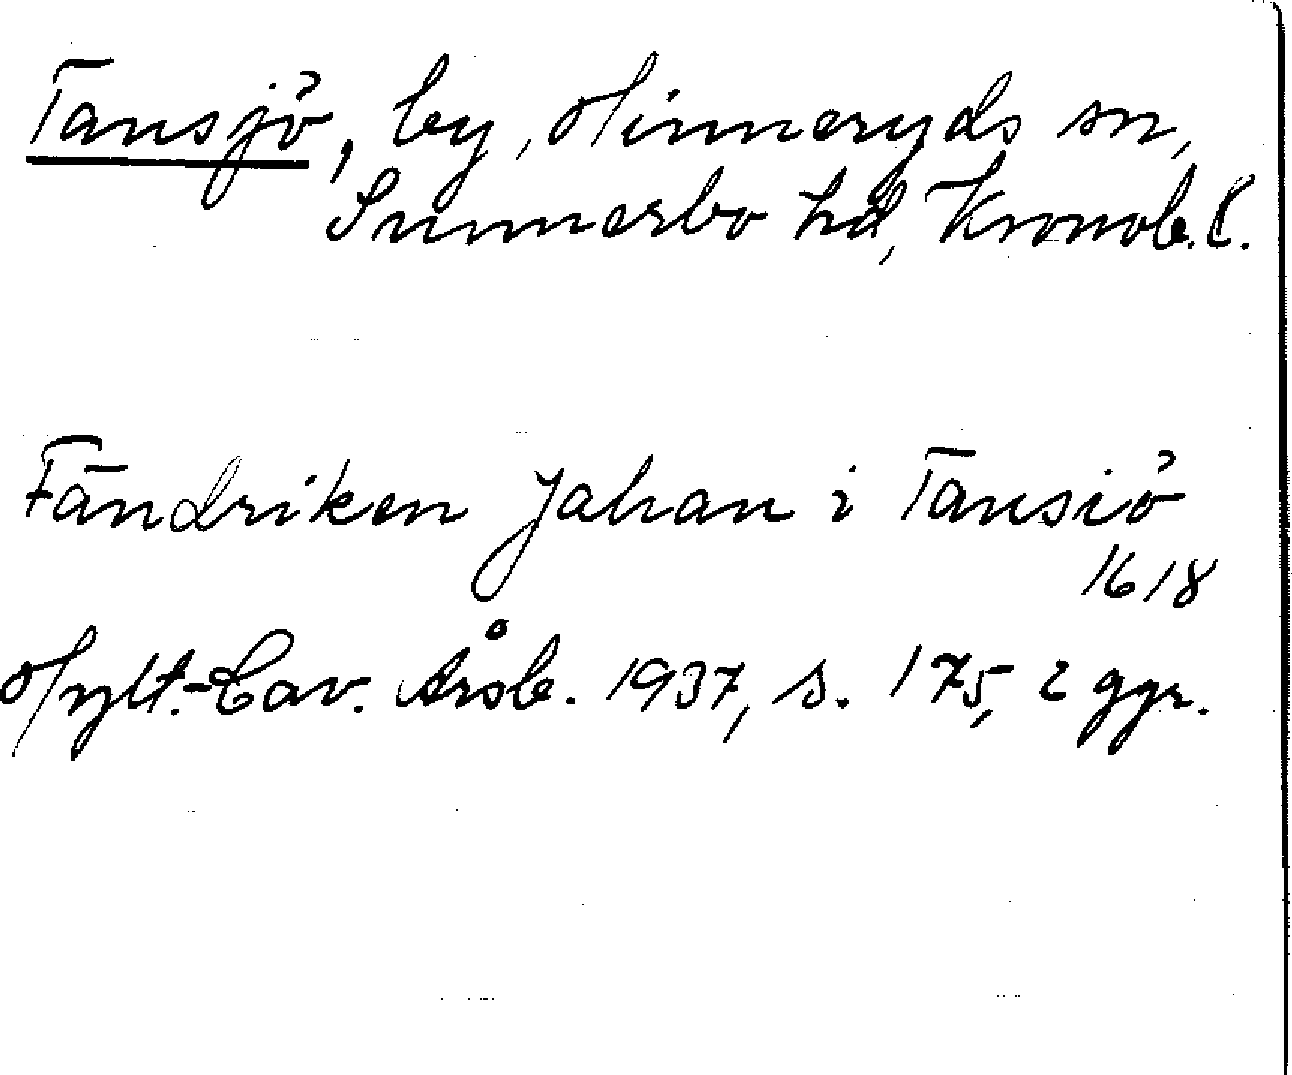 Tansjö, by, Hinneryds sn,
Sunnerbo hd, Kronob. l.
Fändriken Jahan i Tansiö
1618
Hylt.-Cav. Årsb. 1937, s. 175, 2 ggr.